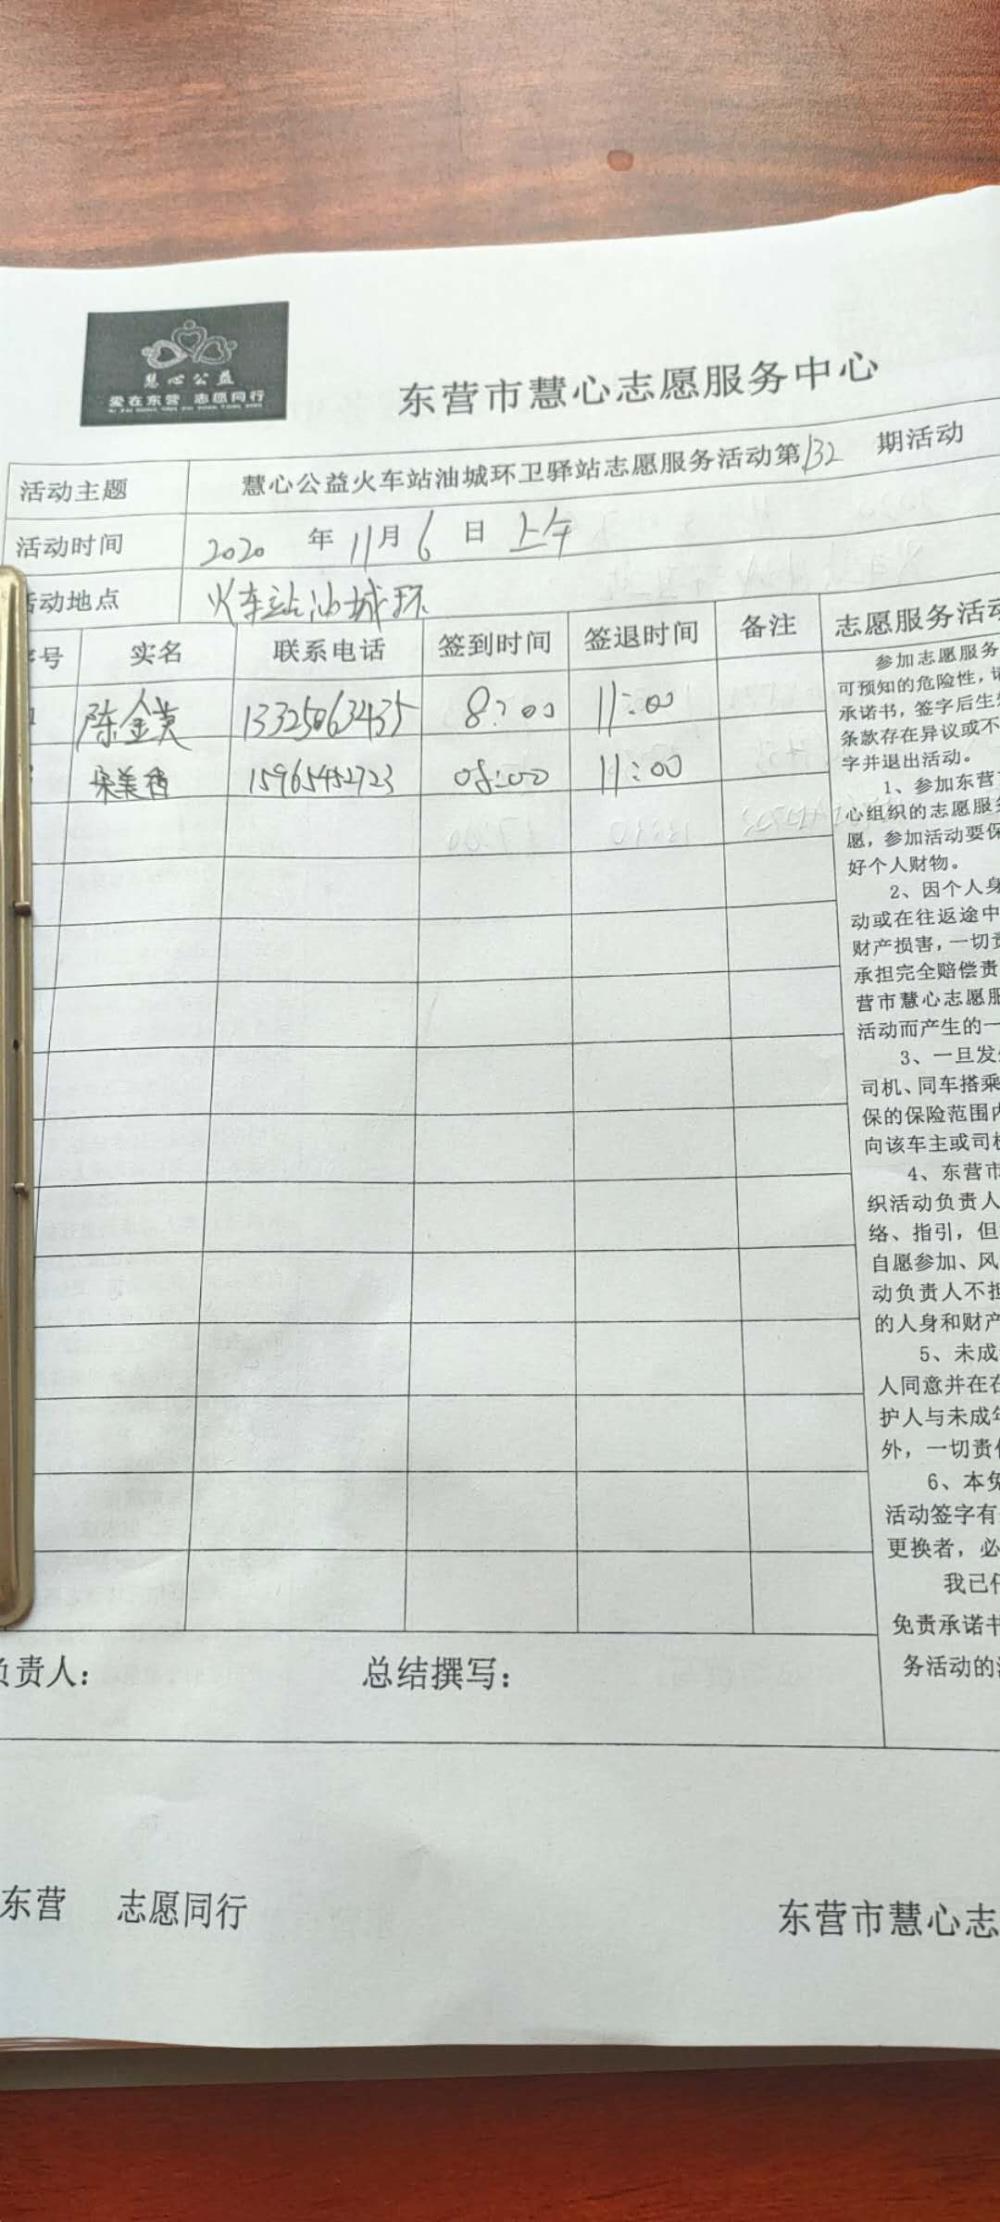 慧心公益
爱在东营 志愿同行
东营市慧心志愿服务中心
活动主题 慧心公益火车站油城环卫驿站志愿服务活动第132期活动
活动时间 2020年11月6日上午
活动地点 火车站油城环
序号 实名 联系电话 签到时间 签退时间 备注 志愿服务活动
陈金英 13325063435 8:00 11:00
宋美香 15965452723 08:00 11:00
参加志愿服务
可预知的危险性，
承诺书，签字后生
条款存在异议或不
字并退出活动。
1、参加东营
心组织的志愿服务
愿，参加活动要保
好个人财物。
2、因个人身
动或在往返途中
财产损害，一切责
承担完全赔偿责
营市慧心志愿服
活动而产生的一
3、一旦发
司机、同车搭乘
保的保险范围内
向该车主或司机
4、东营市
织活动负责人
络、指引，但
自愿参加、风
动负责人不担
的人身和财产
5、未成
人同意并在在
护人与未成年
外，一切责任
6、本免
活动签字有
更换者，必
我已仔
免责承诺书
务活动的
负责人： 总结撰写：
东营 志愿同行 东营市慧心志